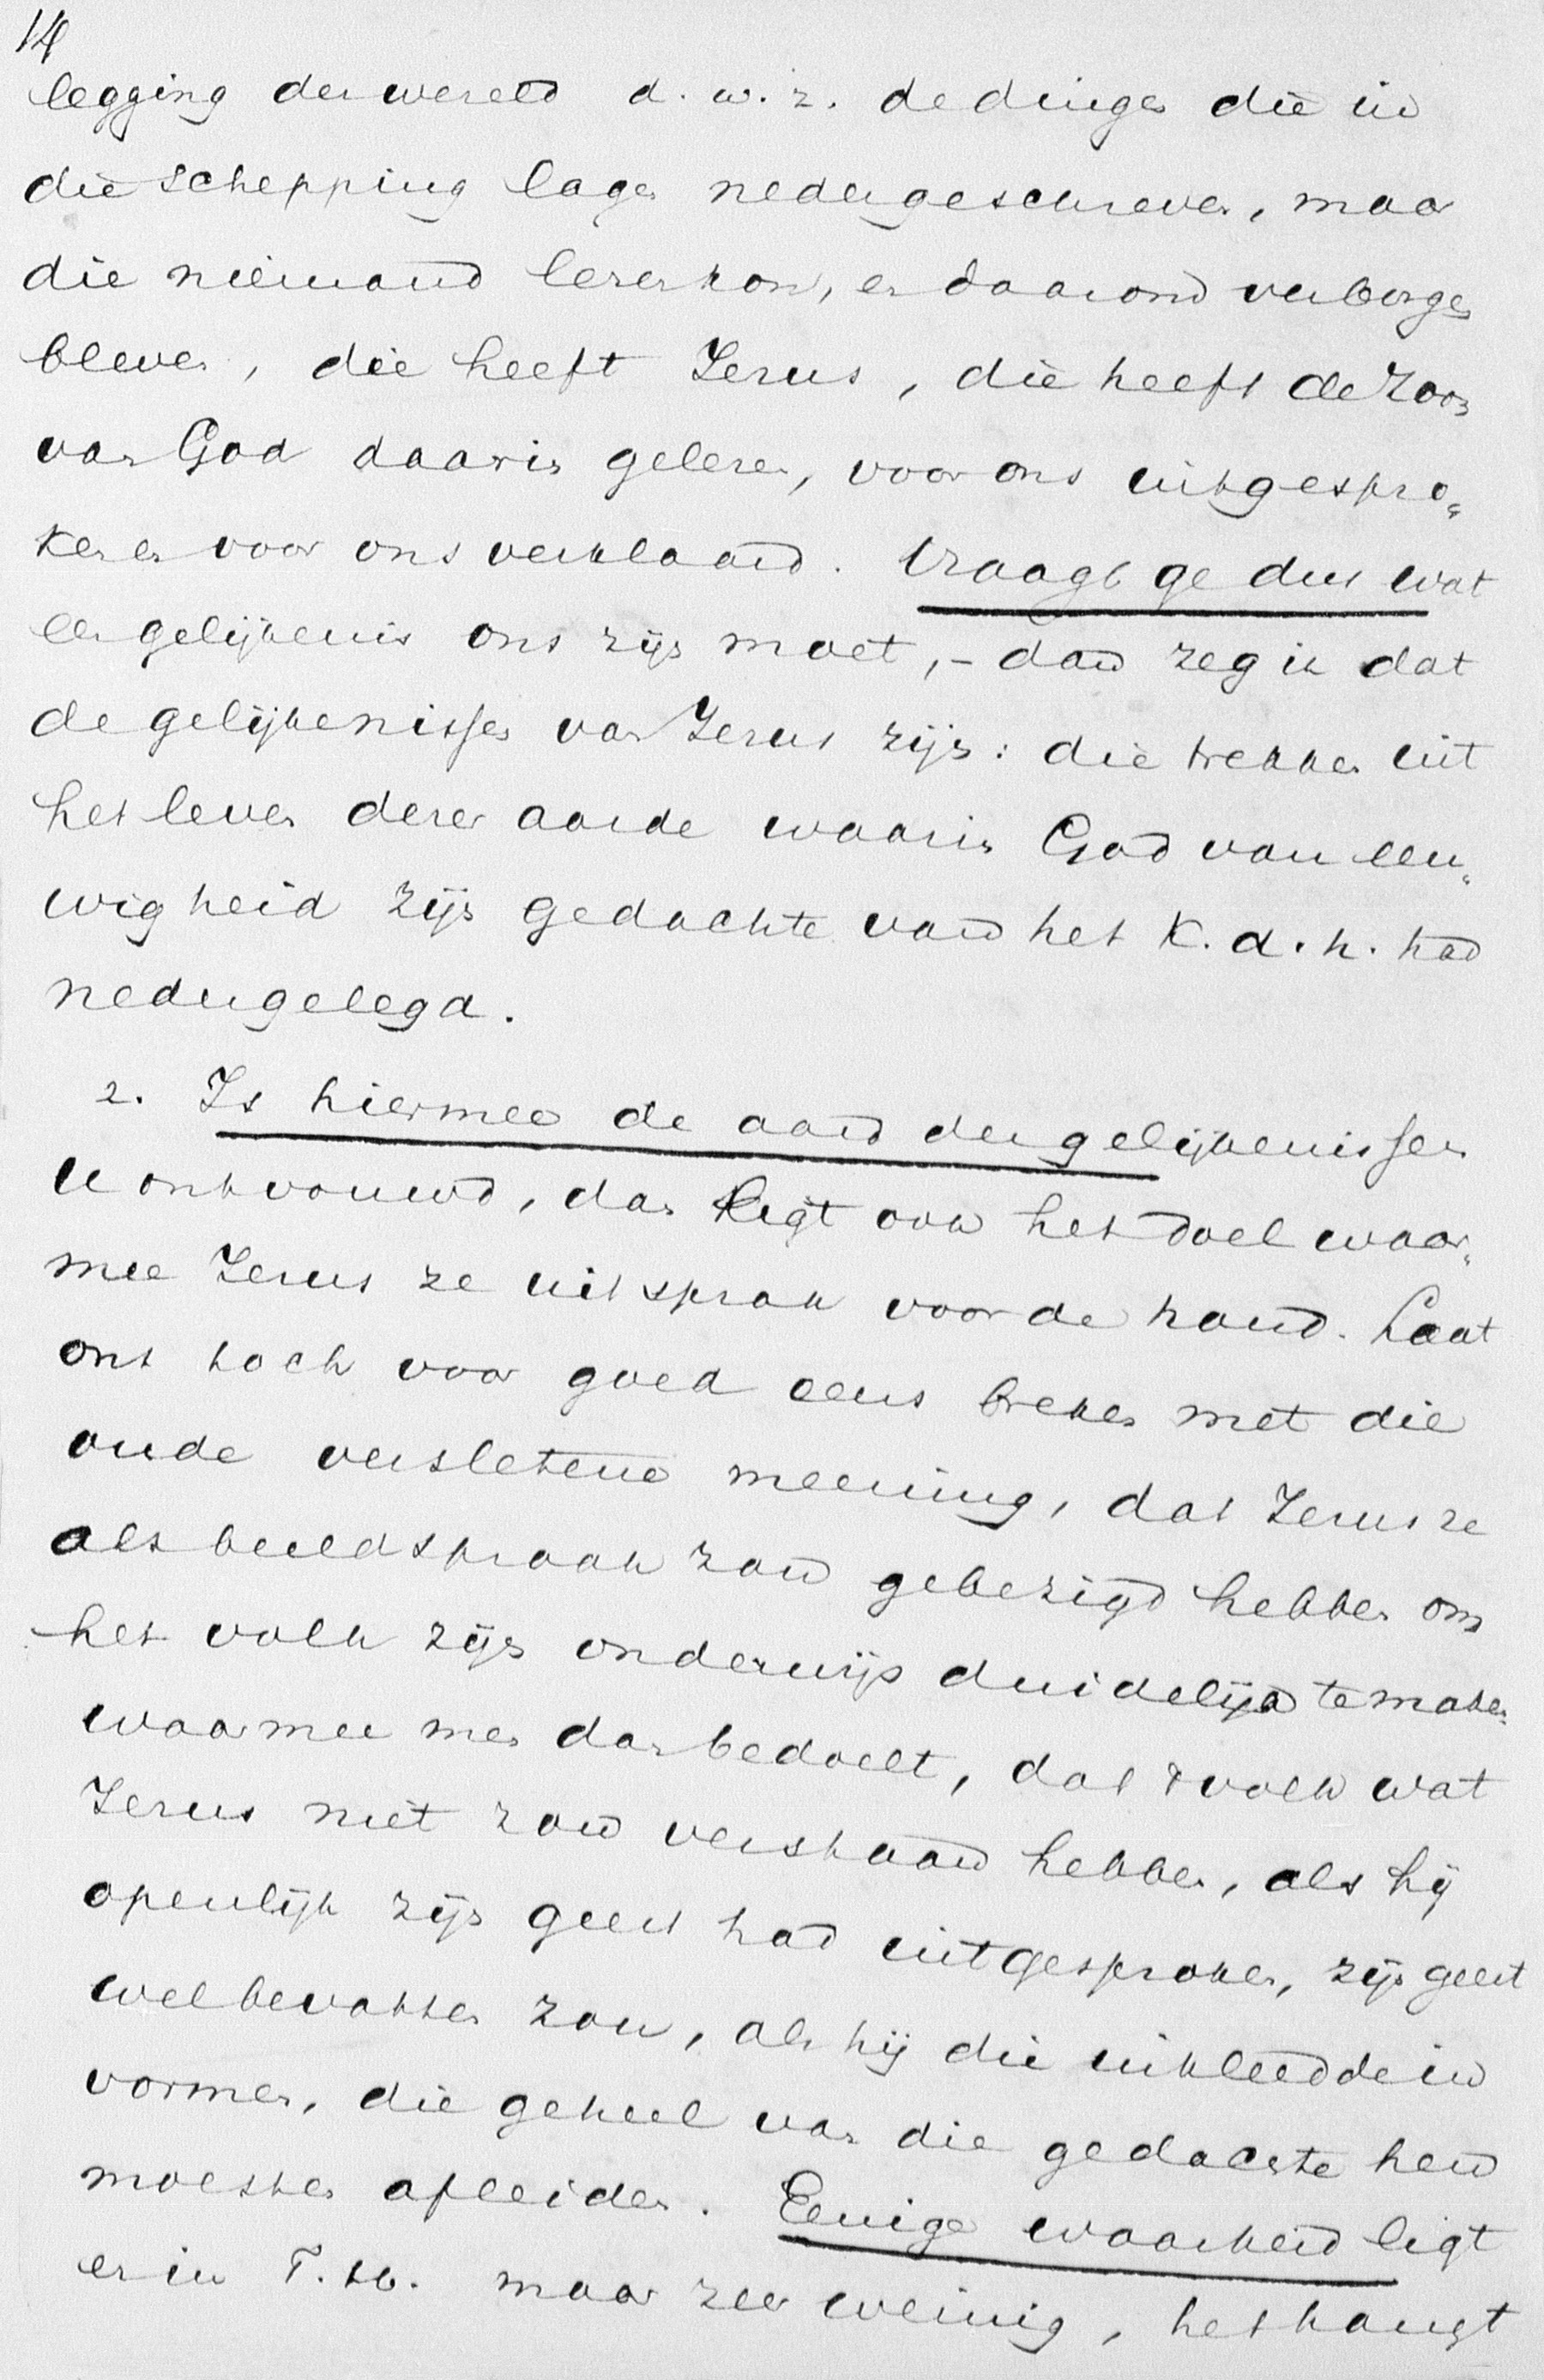 14
legging der wereld d. w. z. de dingen die in
die schepping lagen nedergeschreven, maar
die niemand lezen kon, en daarom verborgen
bleven, die heeft Jezus, die heeft de Zoon
van God daarin gelezen, voor ons uitgespro„
ken en voor ons verklaard. Vraagt ge dus wat
een gelijkenis ons zijn moet, – dan zeg ik dat
de gelijkenissen van Jezus zijn: die trekken uit
het leven dezer aarde waarin God van eeu„
wigheid zijn gedachte van het K. d. h. had
nedergelegd.
2. Is hiermee de aard der gelijkenissen
U ontvouwd, dan ligt ook het doel waar„
mee Jezus ze uitsprak voor de hand. Laat
ons toch voor goed eens breken met die
oude versletene meening, dat Jezus ze
als beeldspraak zou gebezigd hebben om
het volk zijn onderwijs duidelijk te maken
waarmee men dan bedoelt, dat 't volk wat
Jezus niet zou verstaan hebben, als hij
openlijk zijn geest had uitgesproken, zijn geest
wel bevatten zou, als hij die inkleedde in
vormen, die geheel van die gedachte hen
moesten afleiden. Eenige waarheid ligt
er in maar zeer weinig, het hangt